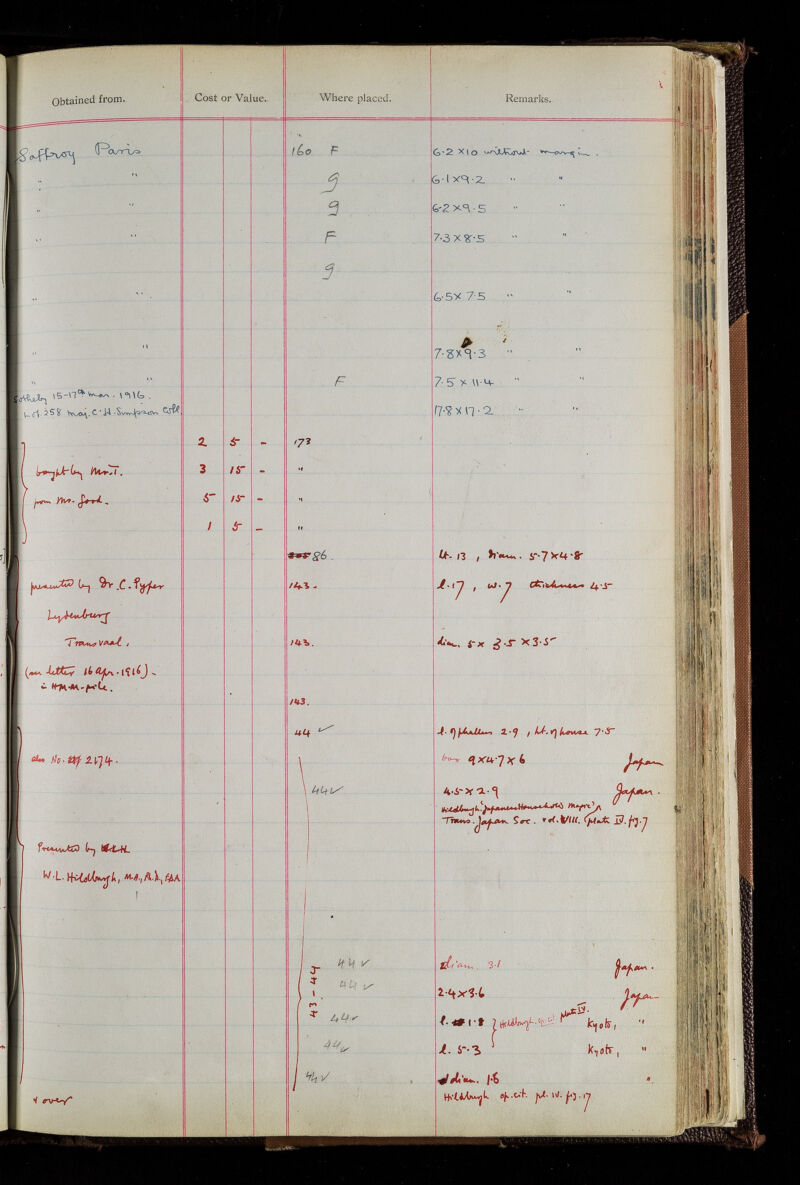 Obtained from. Cost or Value. Where placed. Remarks.
Saffroy Paris 160 F 6·2 x 10 without margin.
" " g 6·1 x 9·2 " "
" " g 6·2 x 9·5 " "
" " F 7·3 x 8·5 " "
g
" " 6·5 x 7·5 " "
" " 7·8 x 9·3 " "
" " F 7·5 x 11·4 " "
Sotheby 15-17th Mar. 1916.
Lot 258 Maj. C. H. Simpson Coll. 17·8 x 17·2 " "
2 5 - 173
bought by Mr. T. 3 15 - "
from Mr. Good. 5 15 - "
1 5 - "
86. Lt. 13, Diam. 5·7 x 4·8
presented by Dr. C. Pyper 143. l. 17, w. 7 thickness 4·5
Lydenburg
Transvaal, 143. dia. 5 x 3·5 x 3·5
(see letter 16 Apr. 1916).
in H.M.M. file.
143.
44 ✓ l. of phallus 2·9, ht. of house 7·5
also No. 2174. box 9 x 4·7 x 6 Japan
44 ✓ 4·5 x 2·9 Japan.
Hildburgh. Japanese Household Magic
Trans. Japan Soc. vol. VIII. (plate IV. fig. 7
Presented by
W. L. Hildburgh, M.A., Ph.D., FSA
43-44
44 ✓ diam. 3·1 Japan.
44 ✓ 2·4 x 3·6 Japan
44 ✓ l. 1·8 Hildburgh. op. cit. plate IV. Kyoto, "
44 ✓ l. 5·3 Kyoto, "
44 ✓ diam. 1·5 "
v over Hildburgh op. cit. pl. IV. fig. 17